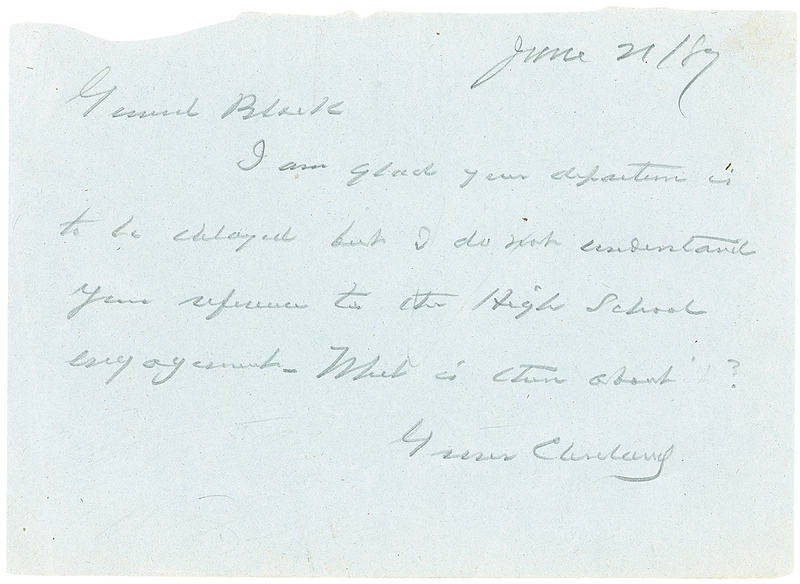 June 21/87
General Black
I am glad your departure is
to be delayed but I do not understand
your reference to the High School
engagement – What is there about ?
Grover Cleveland